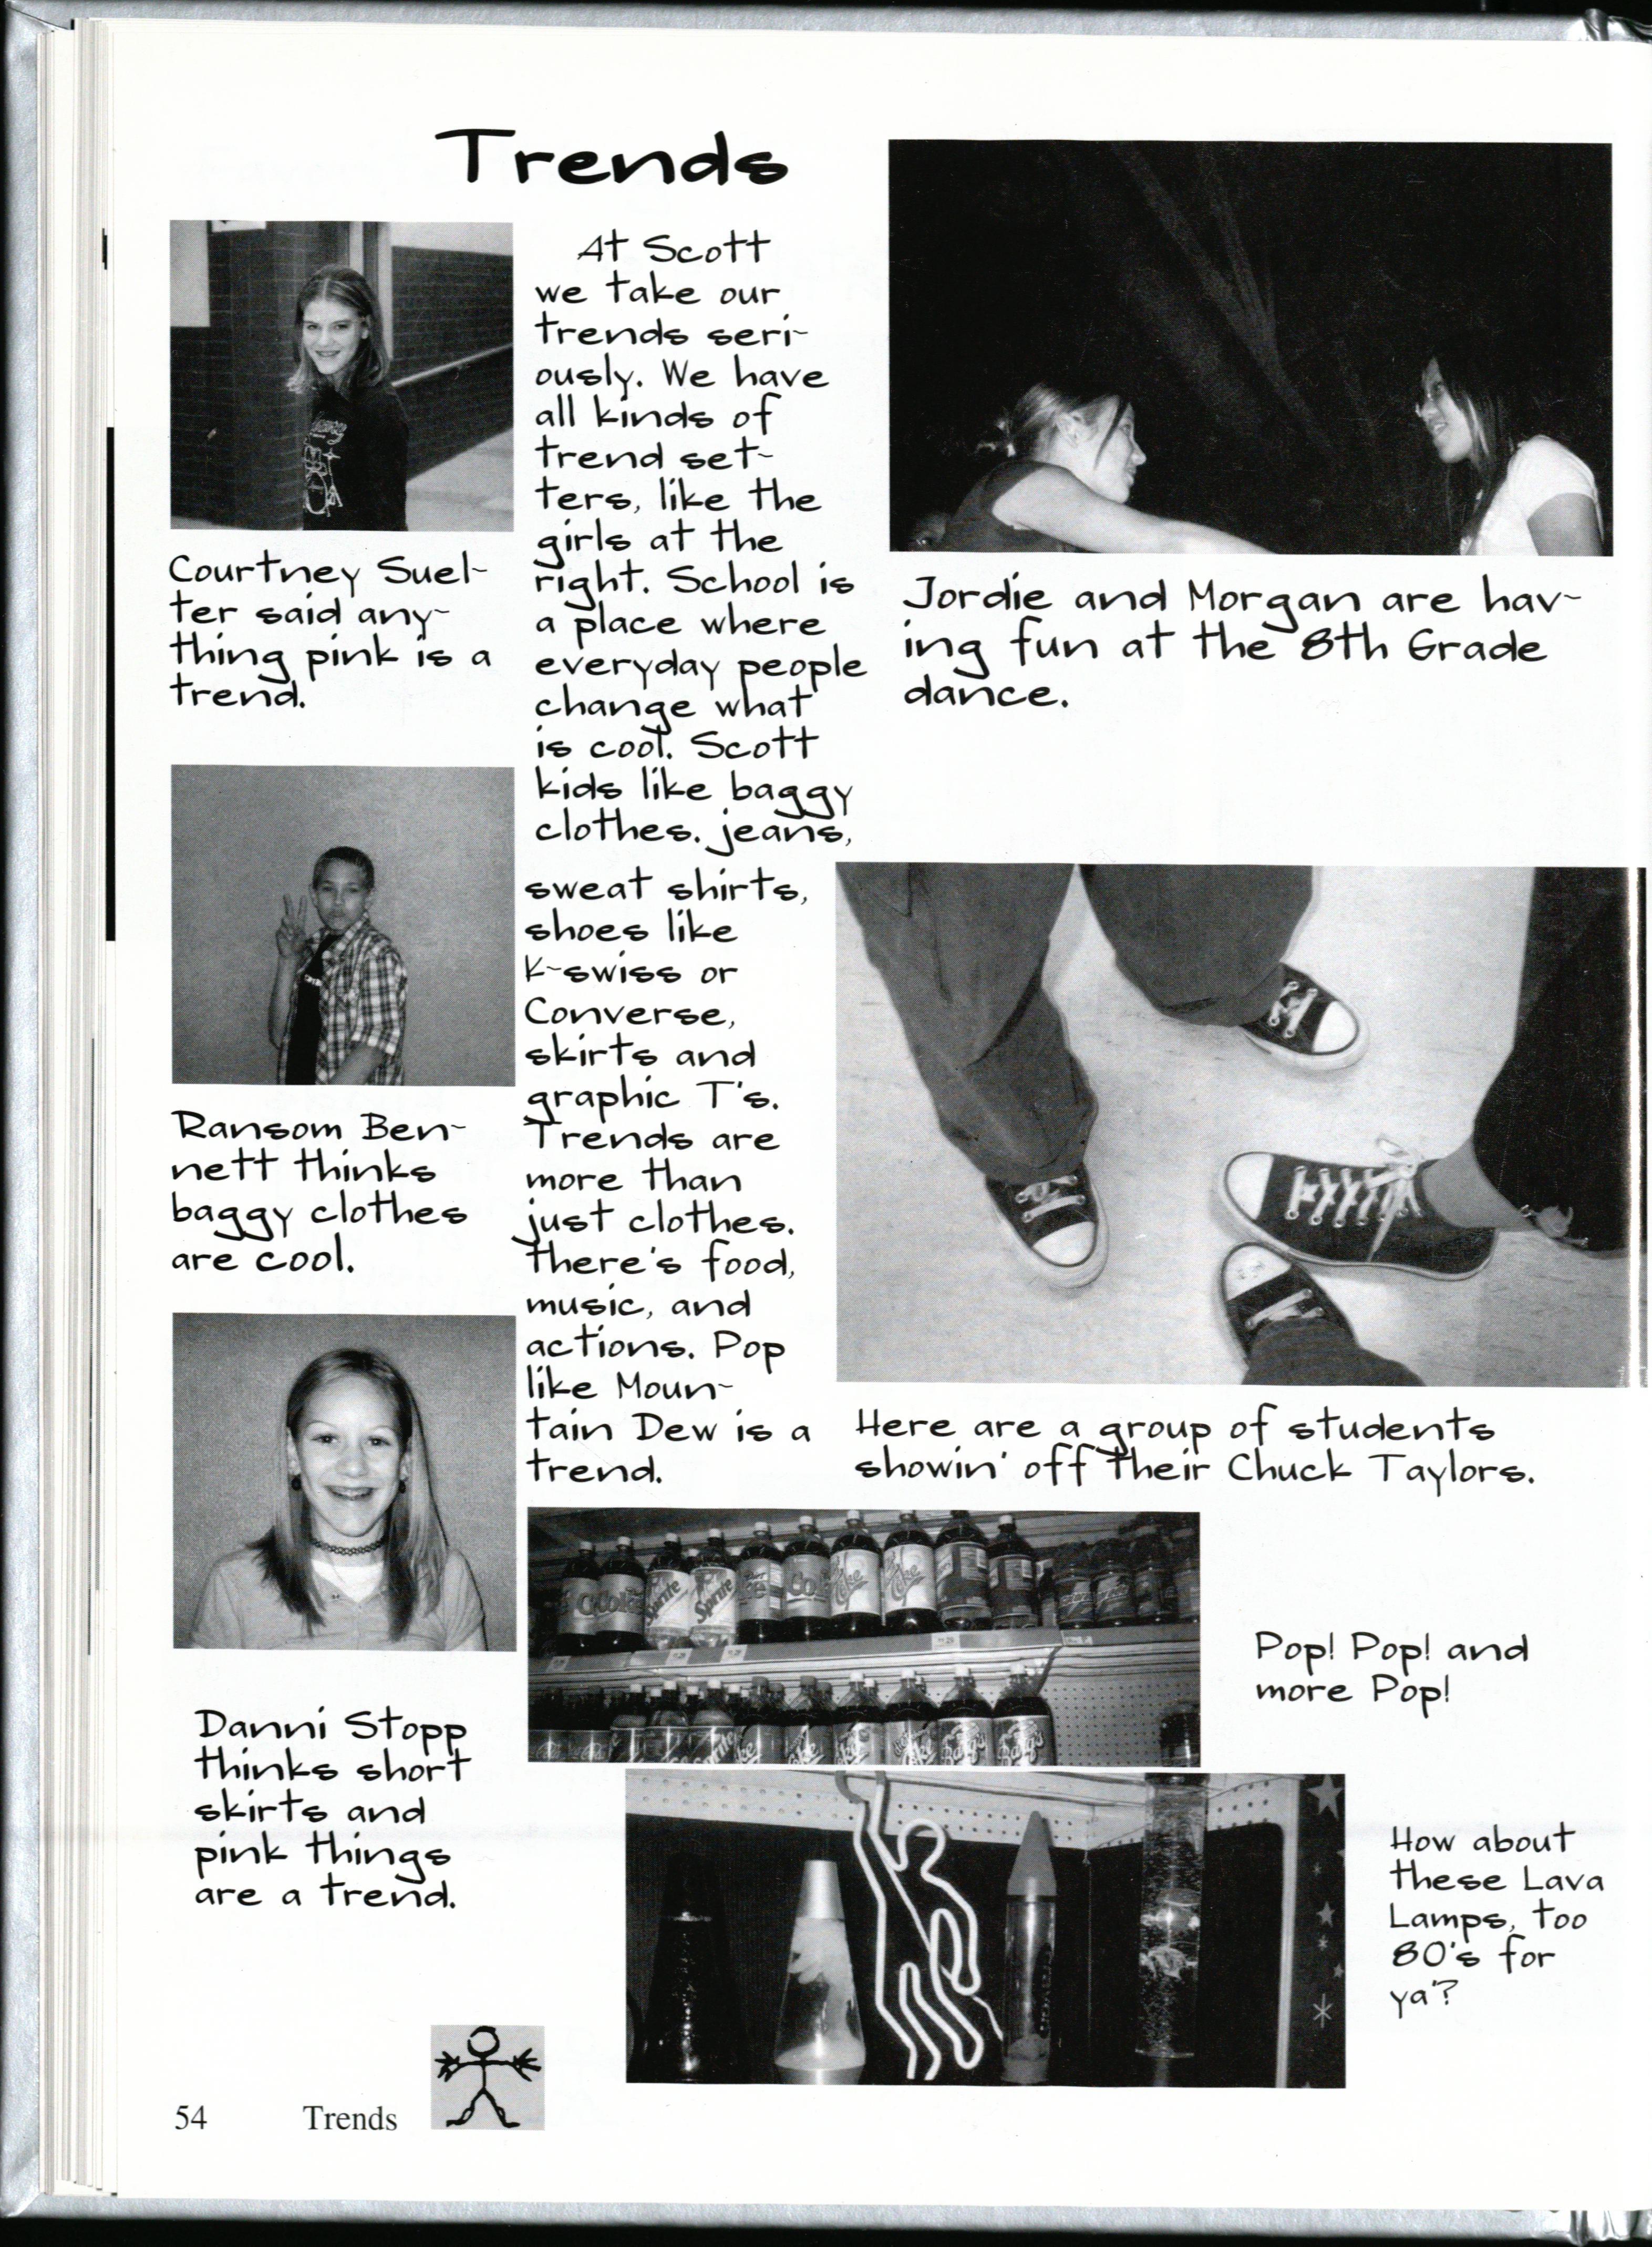 Trends
At Scott
we take our
trends seri-
ously. We have
all kinds of
trend set-
ters, like the
girls at the
right. School is
a place where
everyday people
change what
is cool. Scott
kids like baggy
clothes. jeans,
sweat shirts,
shoes like
K-swiss or
Converse,
skirts and
graphic T's.
Trends are
more than
just clothes.
there's food,
music, and
actions. Pop
like Moun-
tain Dew is a
trend.
Courtney Suel-
ter said any-
thing pink is a
trend.
Ransom Ben-
nett thinks
baggy clothes
are cool.
Danni Stopp
thinks short
skirts and
pink things
are a trend.
Jordie and Morgan are hav-
ing fun at the 8th Grade
dance.
Here are a group of students
showin' off their Chuck Taylors.
Coke Sprite Sprite Coke
Sprite Barq's Barq's
Pop! Pop! and
more Pop!
How about
these Lava
Lamps, too
80's for
ya'?
54 Trends